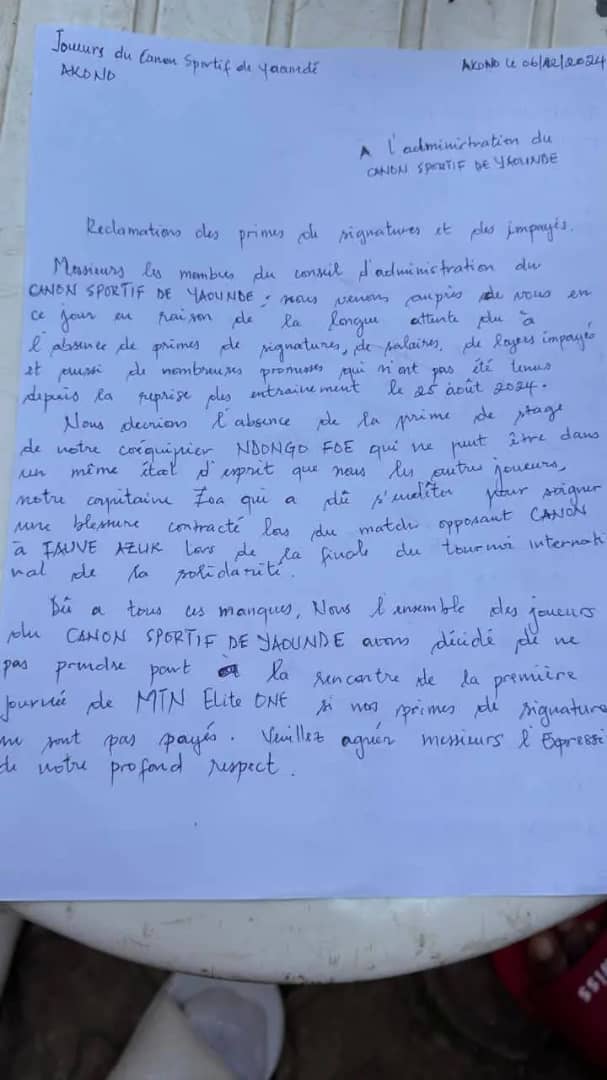 Joueurs du Canon Sportif de Yaoundé
AKONO
AKONO le 06/12/2024
A l'administration du
CANON SPORTIF DE YAOUNDE
Reclamations des primes de signatures et des impayés.
Messieurs les membres du conseil d'administration du
CANON SPORTIF DE YAOUNDE, nous venons auprès de vous en
ce jour en raison de la longue attente du à
l'absence de primes de signatures, de salaires, de loyers impayés
et aussi de nombreuses promesses qui n'ont pas été tenus
depuis la reprise des entrainement le 25 août 2024.
Nous decrions l'absence de la prime de stage
de notre coéquipier NDONGO FOE qui ne peut être dans
un même état d'esprit que nous les autres joueurs,
notre capitaine Zoa qui a dû s'enditer pour soigner
une blessure contracté lors du match opposant CANON
à FAUVE AZUR lors de la finale du tournoi internati
nal de la solidarité.
Dû a tous ces manques, Nous l'ensemble des joueurs
du CANON SPORTIF DE YAOUNDE avons décidé de ne
pas prendre part à la rencontre de la première
journée de MTN Elite ONE si nos primes de signature
ne sont pas payés. Veuillez agréer messieurs l'Expressi
de notre profond respect.